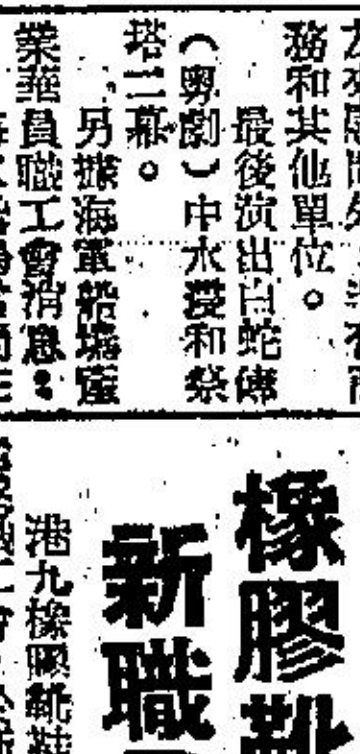 務和其他單位。
最後演出白蛇傳
(粵劇)中水漫和祭
塔二幕。
另據海軍船塢產
業華員職工會消息:
橡膠靴
新職
港九橡膠靴鞋